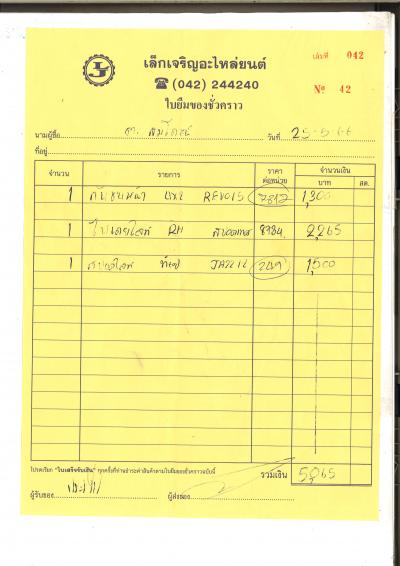 เล่มที่ 042
เล็กเจริญอะไหล่ยนต์
☎ (042) 244240
Nº 42
ใบยืมของชั่วคราว
นามผู้ซื้อ วันที่ 25-5-66
ที่อยู่
จำนวน รายการ ราคา ต่อหน่วย จำนวนเงิน
บาท สต.
1 กันชนหน้า REVO15 7812 1,300
1 ไฟเลี้ยว RH 8784 2,265
1 JAZZ12 2219 1,500
โปรดเรียก "ใบเสร็จรับเงิน" ทุกครั้งที่ท่านชำระค่าสินค้าตามใบยืมของชั่วคราวฉบับนี้
รวมเงิน 5,065
ผู้รับของ ผู้ส่งของ